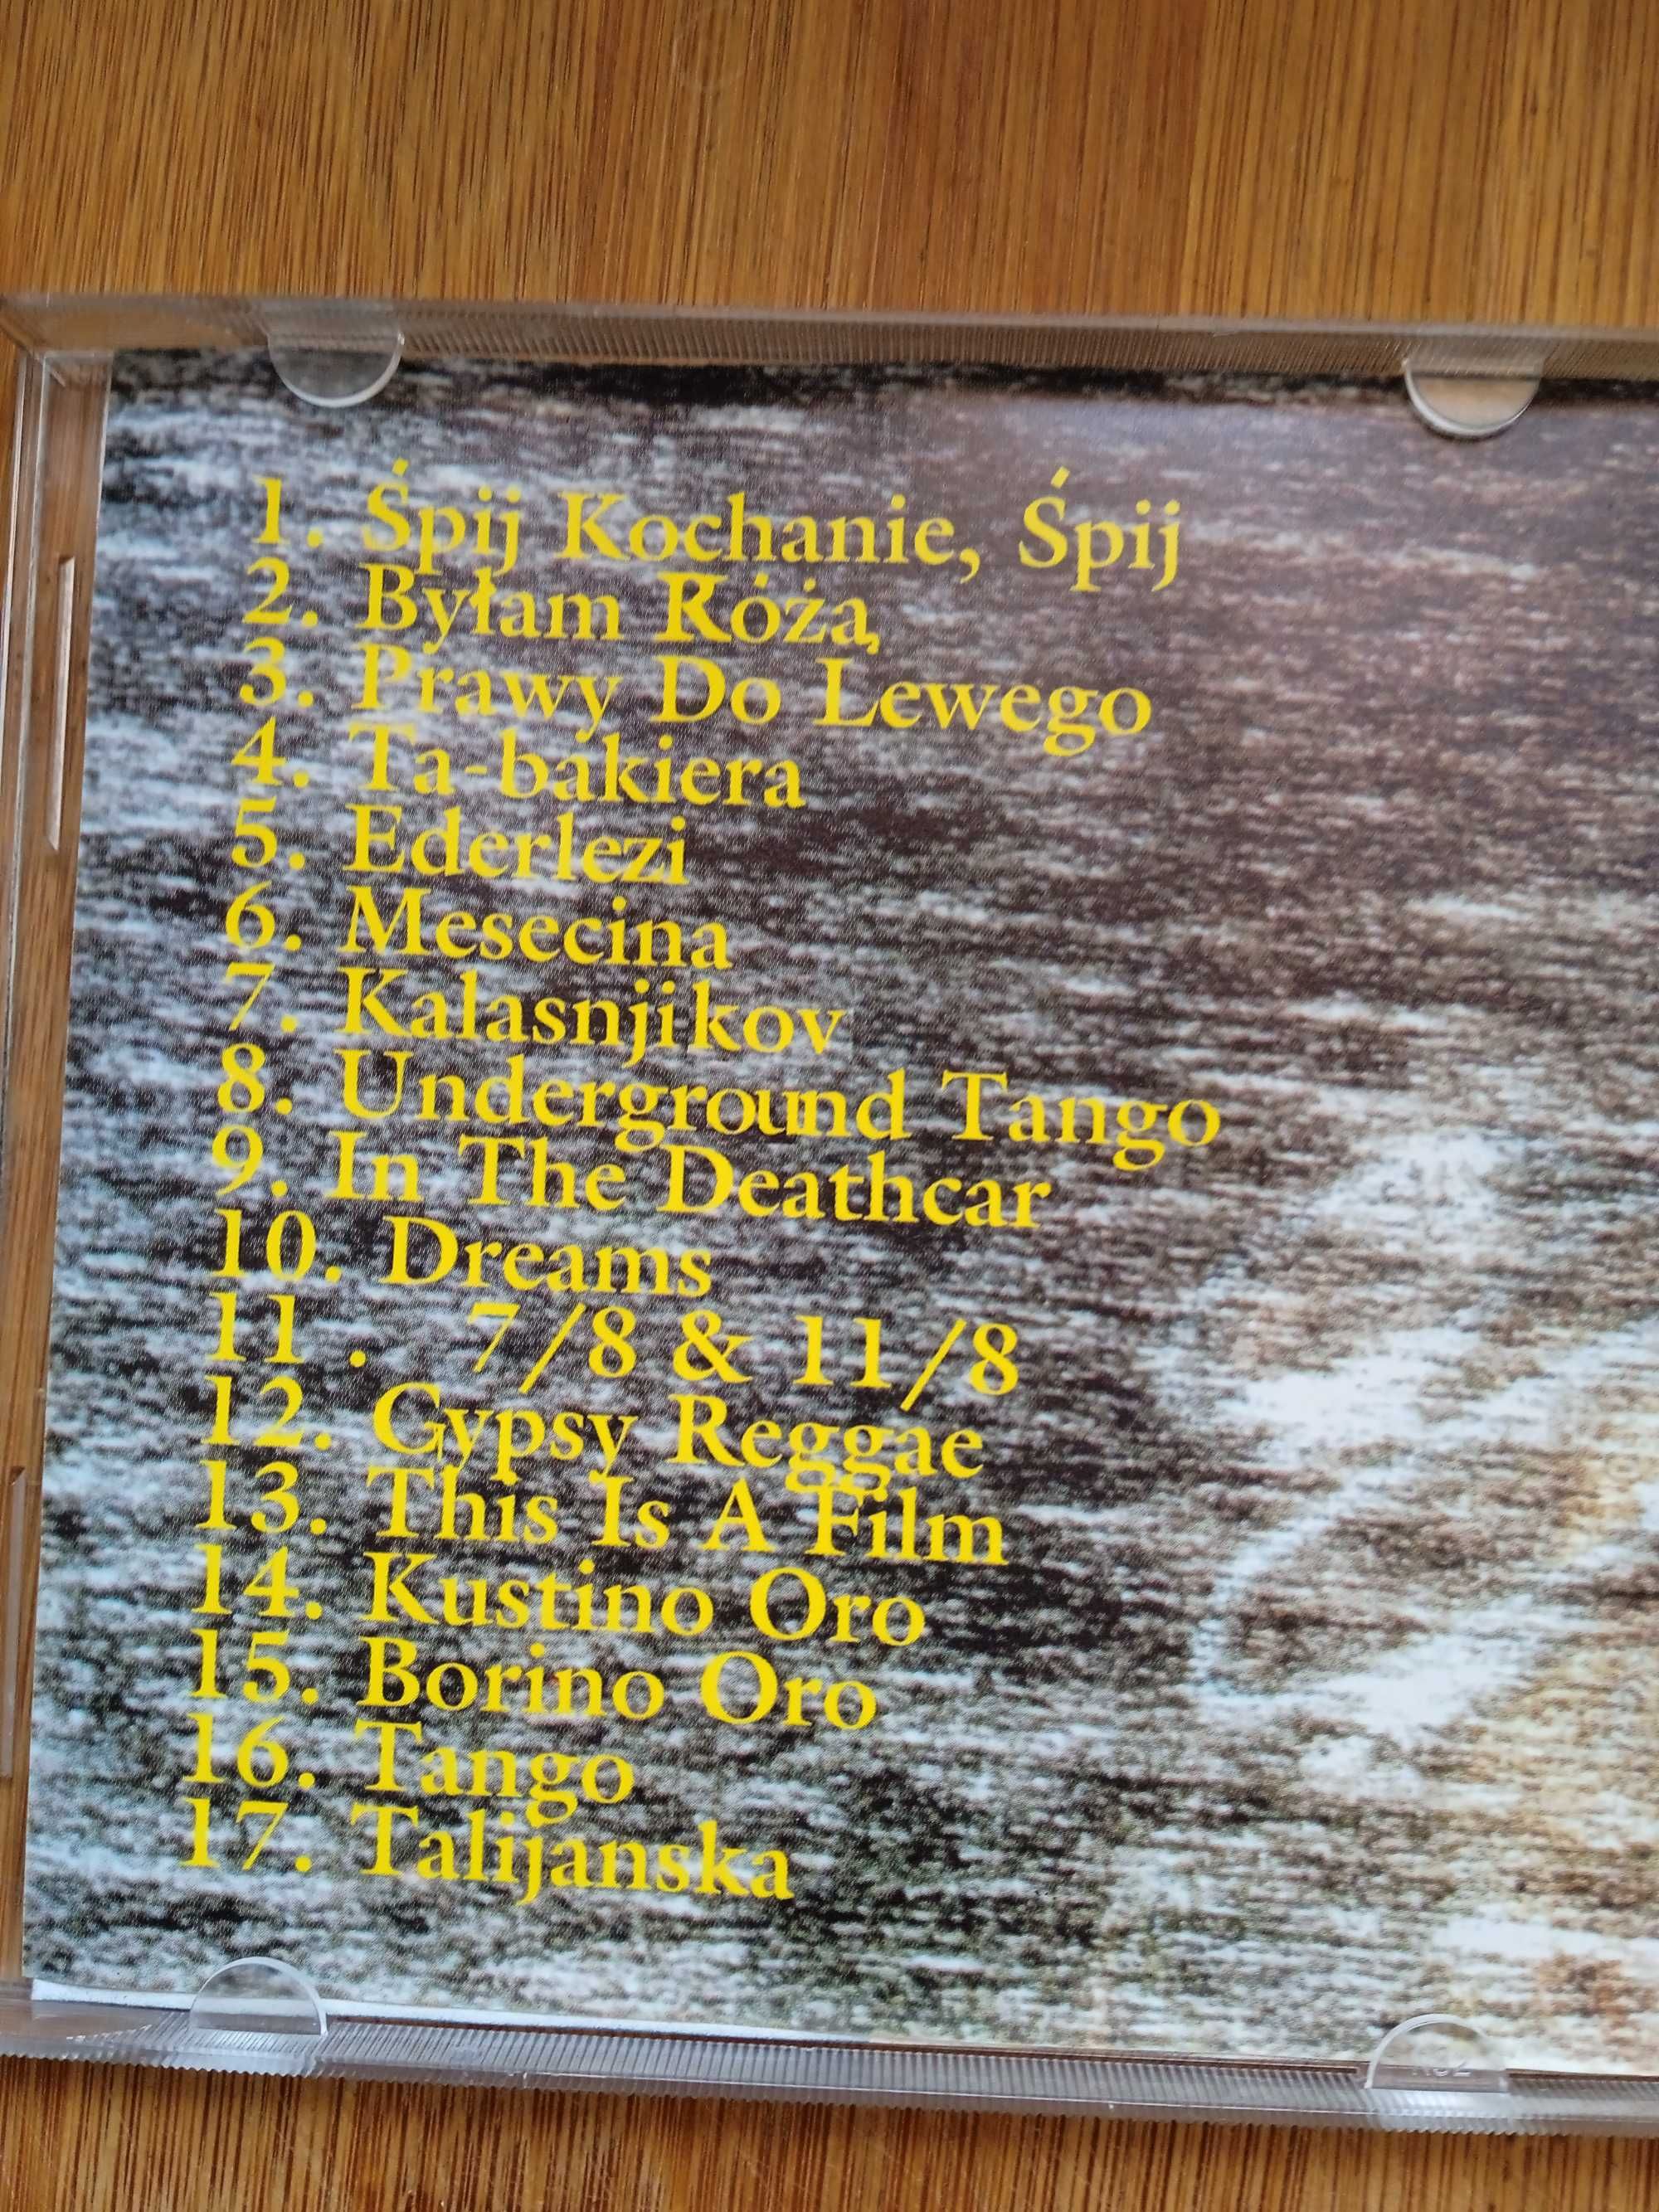 1. Śpij Kochanie, Śpij
2. Byłam Różą
3. Prawy Do Lewego
4. Ta-bakiera
5. Ederlezi
6. Mesecina
7. Kalasnjikov
8. Underground Tango
9. In The Deathcar
10. Dreams
11. 7/8 & 11/8
12. Gypsy Reggae
13. This Is A Film
14. Kustino Oro
15. Borino Oro
16. Tango
17. Talijanska